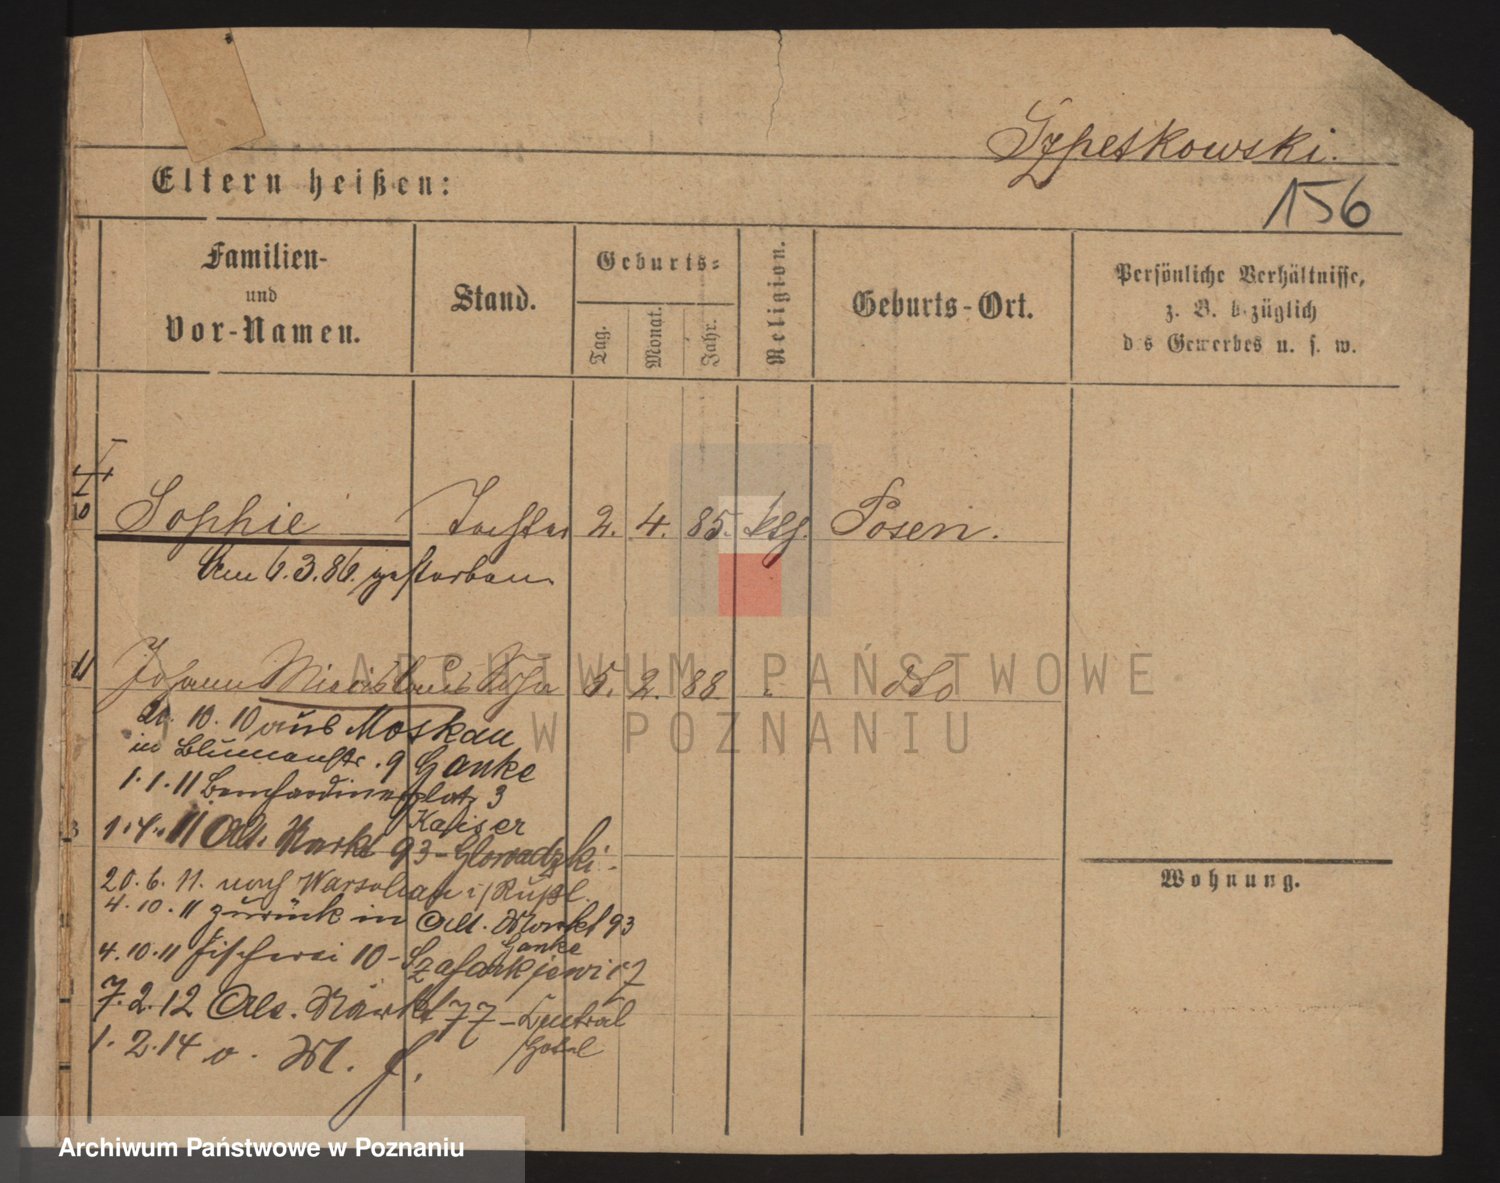 Szpetkowski.
156
Eltern heißen:
Familien-
und
Vor-Namen.
Stand.
Geburts-
Tag.
Monat.
Jahr.
Religion.
Geburts-Ort.
Persönliche Verhältnisse,
z. B. bezüglich
des Gewerbes u. s. w.
10 Sophie Tochter 2. 4. 85. ktg. Posen.
Am 6.3.86. gestorben
11 Johann Miecislaus Sohn 5. 2. 88 " dto
10. 10 aus Moskau
in Blumenstr. 9 Ganke
1.1.11 Bernhardinerplatz 3
Kaiser
1.4.11 Alt. Markt 93 - Glowadzki.
20.6.11. nach Warschau i/Rußl.
4.10.11 zurück in Alt. Markt 93
Ganke
4.10.11 Fischerei 10 - Szafarkjewicz
7.2.12 Alt. Markt 77 - Central
Hotel
1.2.14 o. M. f.
Wohnung.
ARCHIWUM PAŃSTWOWE
W POZNANIU
Archiwum Państwowe w Poznaniu